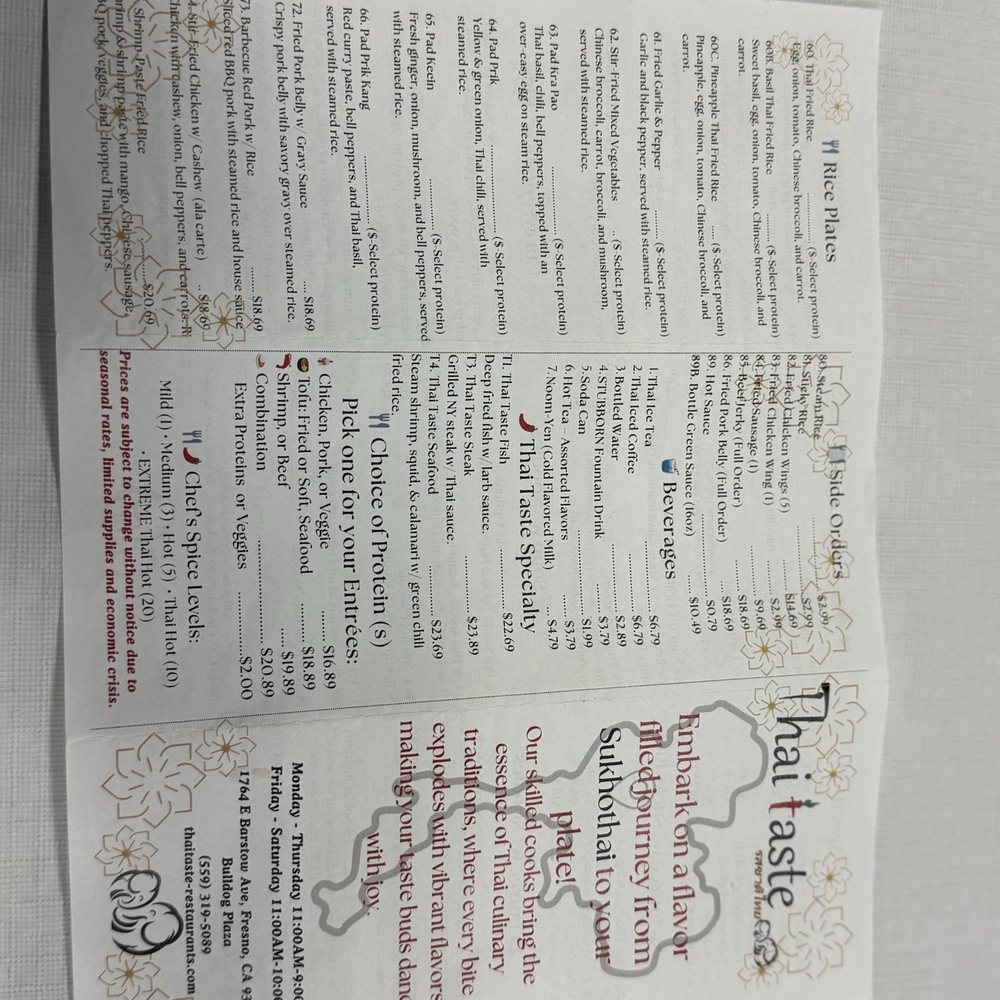 Rice Plates
60. Thai Fried Rice .......... ($-Select protein)
Egg, onion, tomato, Chinese broccoli, and carrot.
60B. Basil Thai Fried Rice .......... ($-Select protein)
Sweet basil, egg, onion, tomato, Chinese broccoli, and
carrot.
60C. Pineapple Thai Fried Rice ..... ($-Select protein)
Pineapple, egg, onion, tomato, Chinese broccoli, and
carrot.
61. Fried Garlic & Pepper .......... ($-Select protein)
Garlic and black pepper, served with steamed rice.
62. Stir-Fried Mixed Vegetables .. ($-Select protein)
Chinese broccoli, carrot, broccoli, and mushroom,
served with steamed rice.
63. Pad Kra Pao .......... ($-Select protein)
Thai basil, chili, bell peppers, topped with an
over-easy egg on steam rice.
64. Pad Prik .......... ($-Select protein)
Yellow & green onion, Thai chili, served with
steamed rice.
65. Pad Keein .......... ($-Select protein)
Fresh ginger, onion, mushroom, and bell peppers, served
with steamed rice.
66. Pad Prik Kang .......... ($-Select protein)
Red curry paste, bell peppers, and Thai basil,
served with steamed rice.
72. Fried Pork Belly w/ Gravy Sauce .... $18.69
Crispy pork belly with savory gravy over steamed rice.
73. Barbecue Red Pork w/ Rice .......... $18.69
Sliced red BBQ pork with steamed rice and house sauce
4. Stir-Fried Chicken w/ Cashew (ala carte) .. $18.69
Chicken with cashew, onion, bell peppers, and carrots.
Shrimp-Paste Fried Rice .......... $20.69
& shrimp paste with mango, Chinese sausage,
pork, veggies, and chopped Thai peppers.
Side Orders
80. Steam Rice .......... $2.99
81. Sticky Rice .......... $2.99
82. Fried Chicken Wings (5) .......... $14.69
83. Fried Chicken Wing (1) .......... $2.99
84. Fried Sausage (1) .......... $9.69
85. Beef Jerky (Full Order) .......... $18.69
86. Fried Pork Belly (Full Order) ..... $18.69
89. Hot Sauce .......... $0.79
89B. Bottle Green Sauce (16oz) .......... $10.49
Beverages
1. Thai Ice Tea .......... $6.79
2. Thai Iced Coffee .......... $6.79
3. Bottled Water .......... $2.89
4. STUBBORN Fountain Drink ....... $3.79
5. Soda Can .......... $1.99
6. Hot Tea - Assorted Flavors ..... $3.79
7. Noom-Yen (Cold Flavored Milk) ..... $4.79
Thai Taste Specialty
T1. Thai Taste Fish .......... $22.69
Deep fried fish w/ larb sauce.
T3. Thai Taste Steak .......... $23.89
Grilled NY steak w/ Thai sauce.
T4. Thai Taste Seafood .......... $23.69
Steam shrimp, squid, & calamari w/ green chili
fried rice.
Choice of Protein (s)
Pick one for your Entrées:
Chicken, Pork, or Veggie .......... $16.89
Tofu: Fried or Soft, Seafood ....... $18.89
Shrimp, or Beef ..... $19.89
Combination .......... $20.89
Extra Proteins or Veggies ..........$2.00
Chef's Spice Levels:
Mild (1) • Medium (3) • Hot (5) • Thai Hot (10)
• EXTREME Thai Hot (20)
Prices are subject to change without notice due to
seasonal rates, limited supplies and economic crisis.
Thai taste
รสชาติไทย
Embark on a flavor
filled journey from
Sukhothai to your
plate!
Our skilled cooks bring the
essence of Thai culinary
traditions, where every bite
explodes with vibrant flavors
making your taste buds danc
with joy.
Monday - Thursday 11:00AM-9:00
Friday - Saturday 11:00AM-10:00
1764 E Barstow Ave, Fresno, CA 93
Bulldog Plaza
(559) 319-5089
thaitaste-restaurants.com